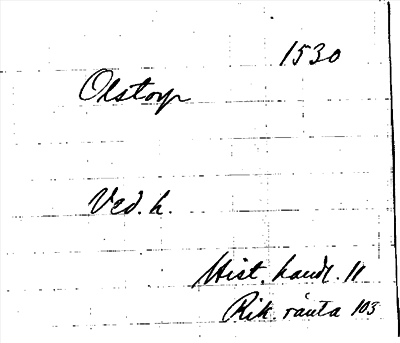 1530
Olstorp
Ved. h.
Hist. handl. 11
Rik. ränta 103